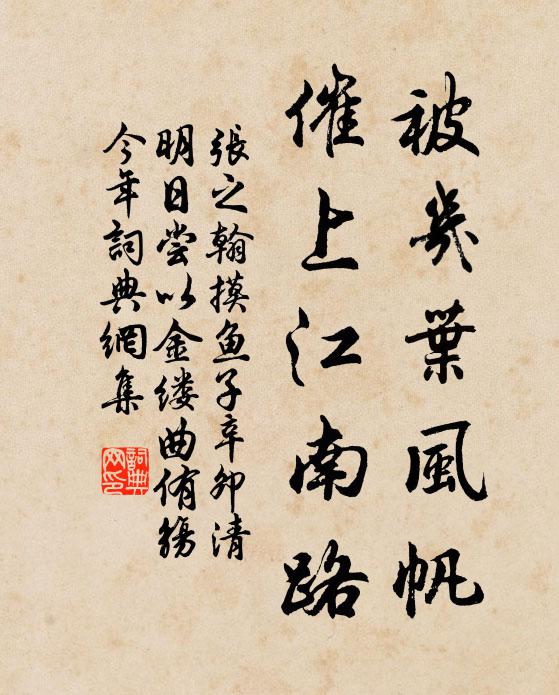 被幾葉風帆
催上江南路
張之翰摸鱼子辛卯清
明日尝以金缕曲侑觴
今年詞典網集
詞典網印